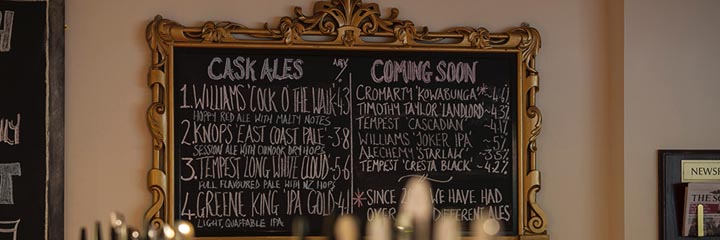 CASK ALES
ABV
1. WILLIAMS 'COCK O' THE WALK' 4.3
HOPPY RED ALE WITH MALTY NOTES
2. KNOPS EAST COAST PALE 3.8
SESSION ALE WITH CHINOOK DRY HOPS
3. TEMPEST LONG WHITE CLOUD 5.6
FULL FLAVOURED PALE WITH NZ HOPS
4. GREENE KING 'IPA GOLD' 4.1
LIGHT, QUAFFABLE IPA
COMING SOON
CROMARTY 'KOWABUNGA'*
TIMOTHY TAYLOR 'LANDLORD'
TEMPEST 'CASCADIAN'
WILLIAMS 'JOKER IPA'
ALECHEMY 'STARLAW'
TEMPEST 'CRESTA BLACK'
*SINCE WE HAVE HAD
OVER DIFFERENT ALES
NEWSP